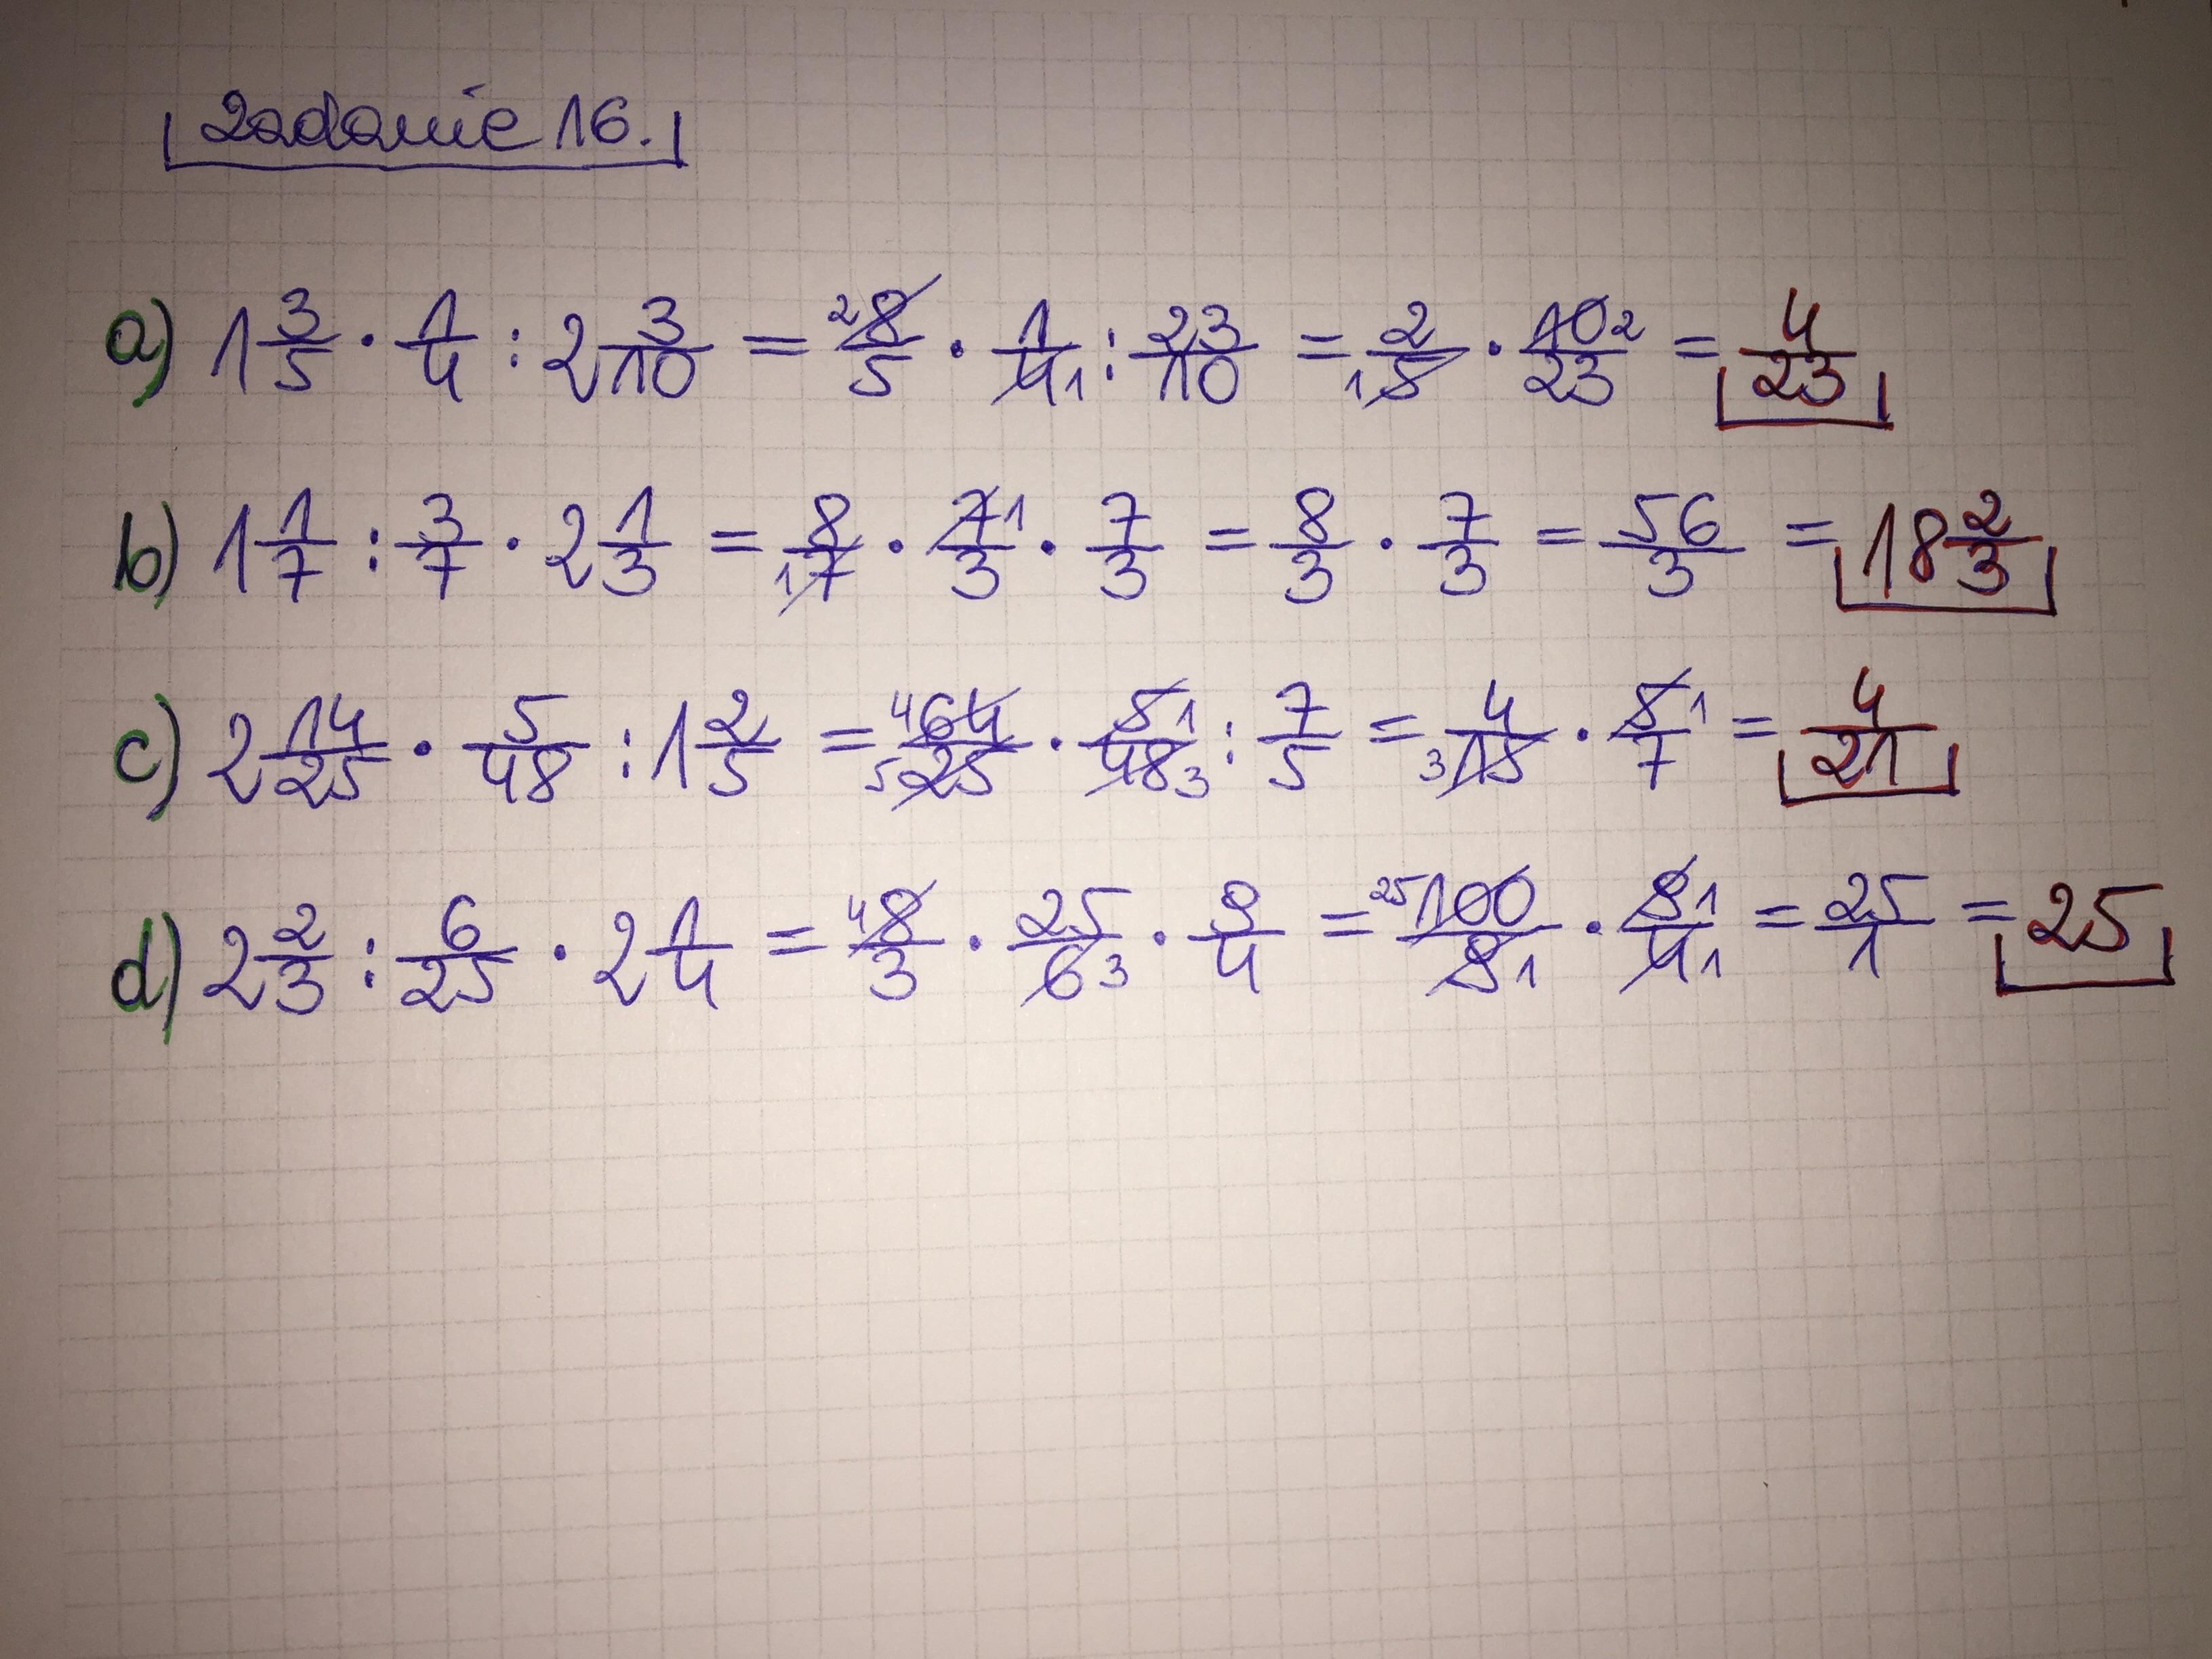 Zadanie 16.
a) 1 3/5 · 1/4 : 2 3/10 = ²8/5 · 1/4₁ : 23/10 = 2/₁5 · 10²/23 = 4/23
b) 1 1/7 : 3/7 · 2 1/3 = 8/₁7 · 7¹/3 · 7/3 = 8/3 · 7/3 = 56/3 = 18 2/3
c) 2 14/25 · 5/48 : 1 2/5 = ⁴64/₅25 · 5¹/48₃ : 7/5 = 4/₃15 · 5¹/7 = 4/21
d) 2 2/3 : 6/25 · 2 1/4 = ⁴8/3 · 25/6₃ · 9/4 = ²⁵100/9₁ · 9¹/4₁ = 25/1 = 25